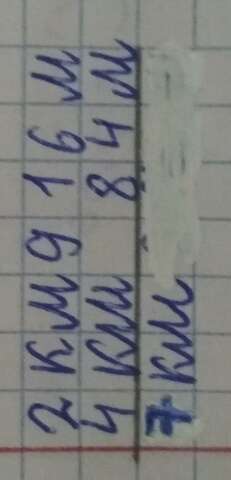 2 км 916 м
4 км 84 м
7 км